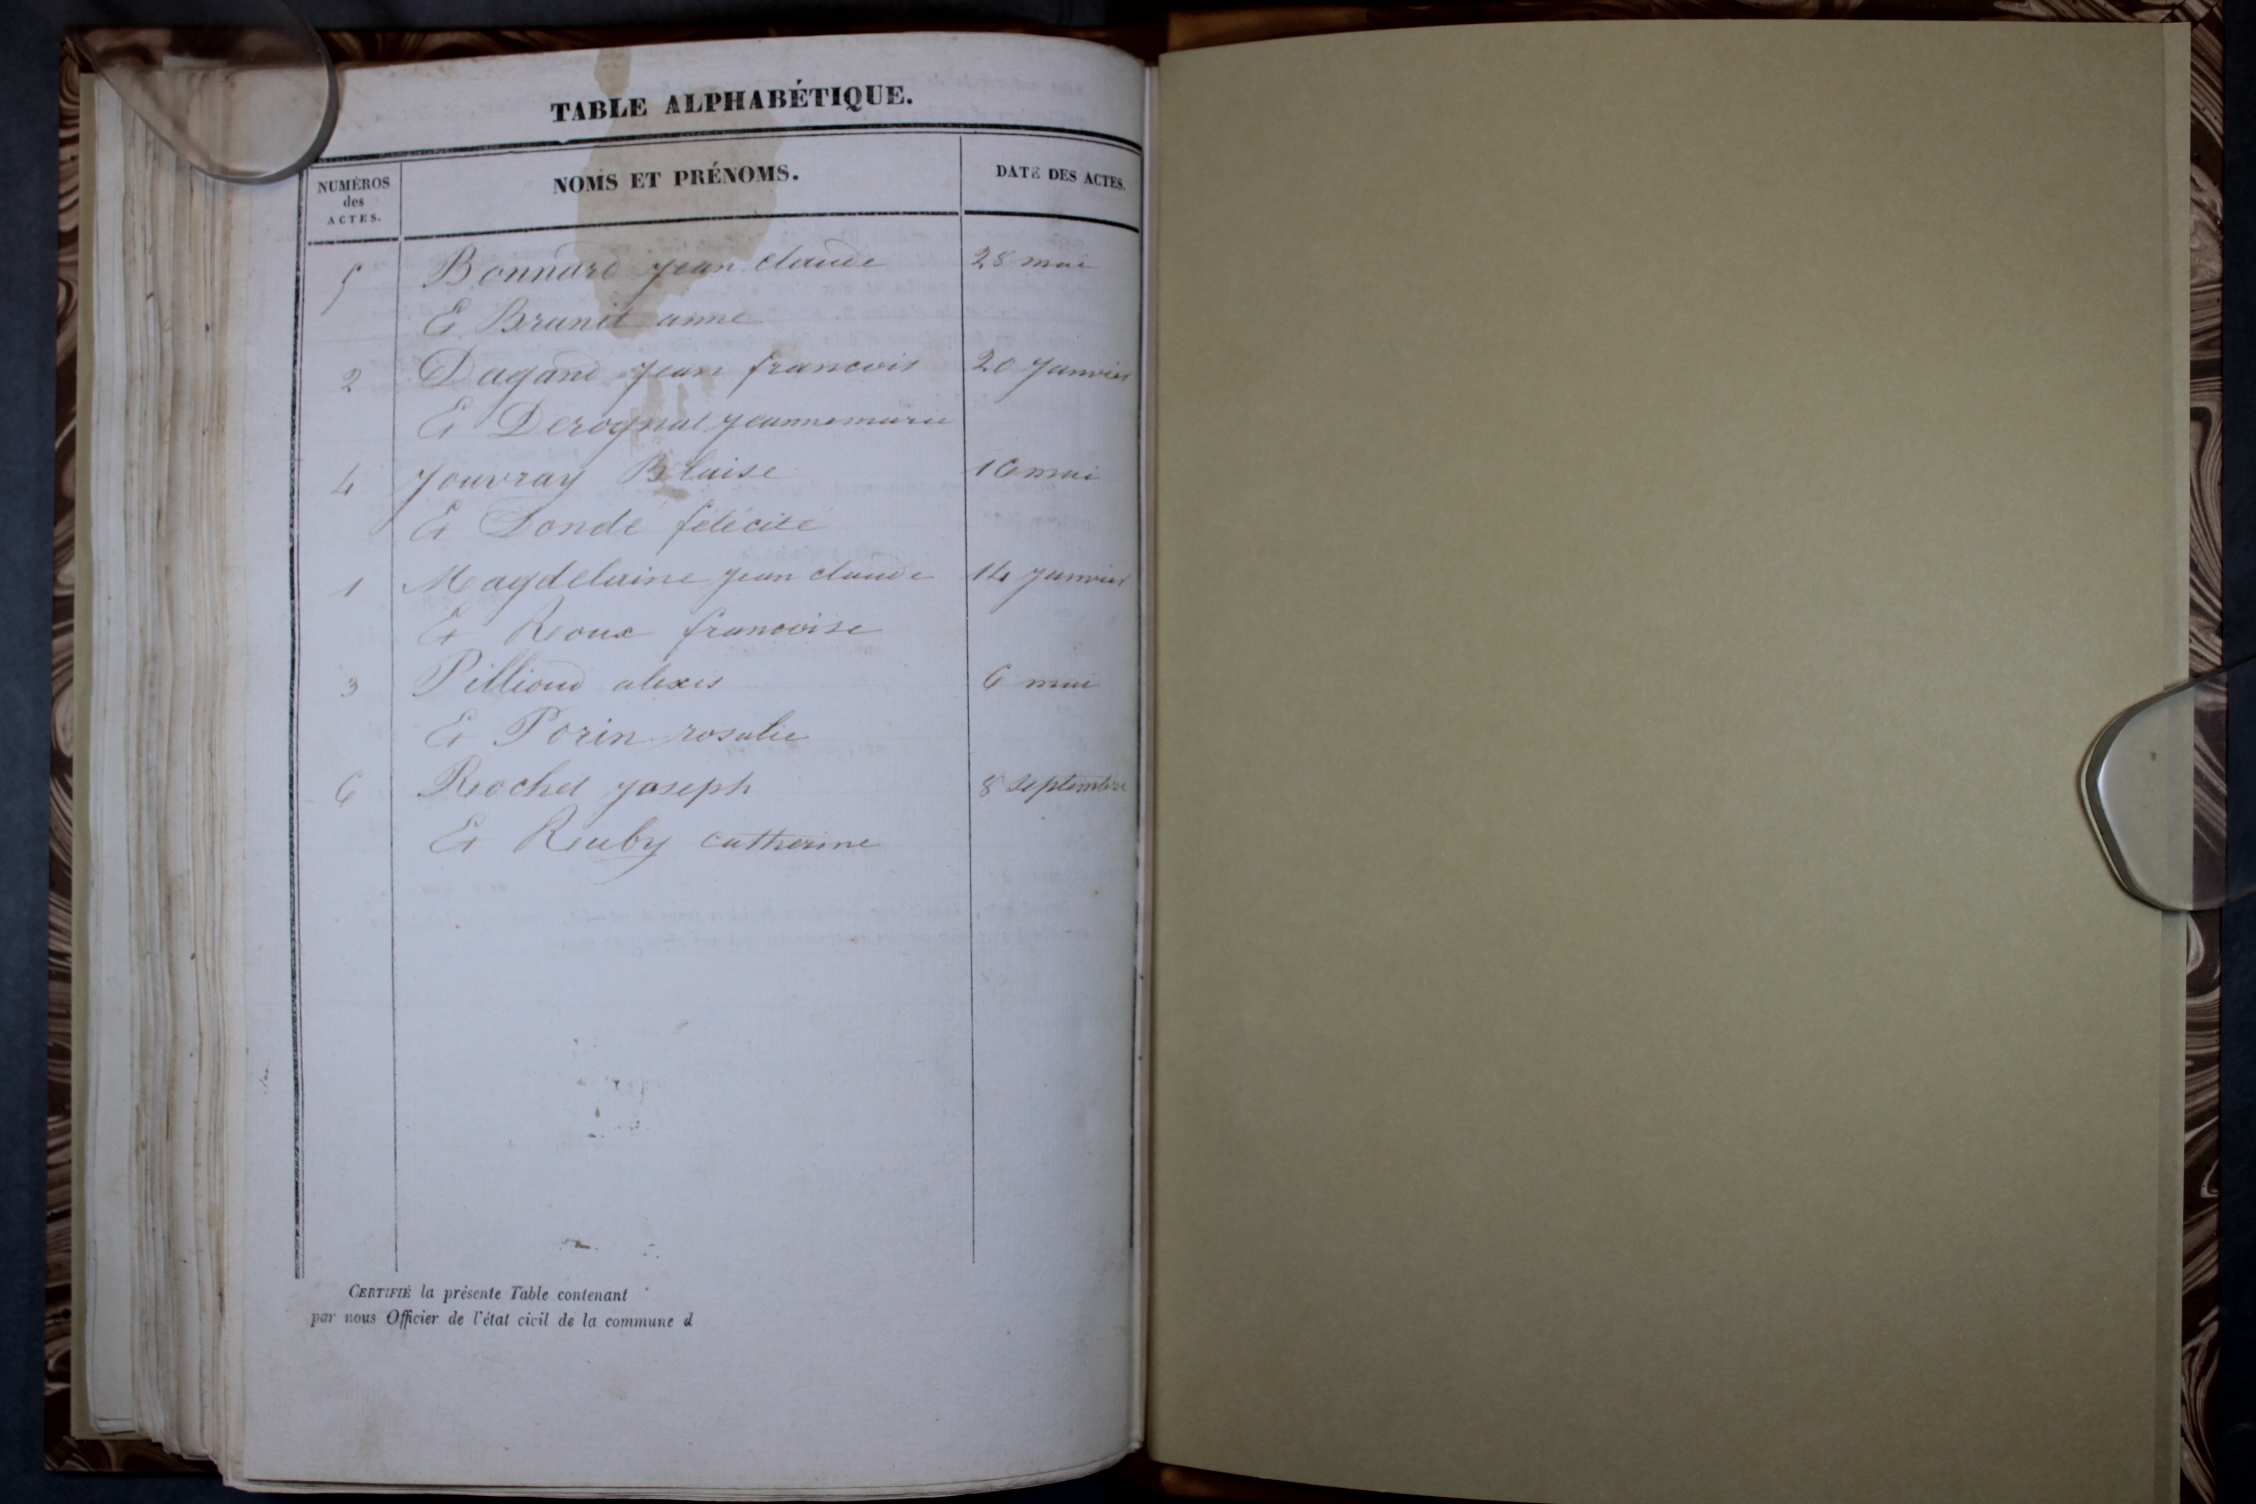 TABLE ALPHABÉTIQUE.
NUMÉROS des ACTES. NOMS ET PRÉNOMS. DATE DES ACTES.
5 Bonnard jean claude 28 mai
Et Brunet anne
2 Dagand jean francois 20 janvier
Et Derognat jeannemarie
4 Jouvray Blaise 16 mai
Et Dondé félécité
1 Magdelaine jean claude 14 janvier
Et Roux francoise
3 Pilliond alexis 6 mai
Et Porin rosalie
6 Rochet joseph 8 septembre
Et Ruby catherine
CERTIFIÉ la présente Table contenant
par nous Officier de l'état cicil de la commune d